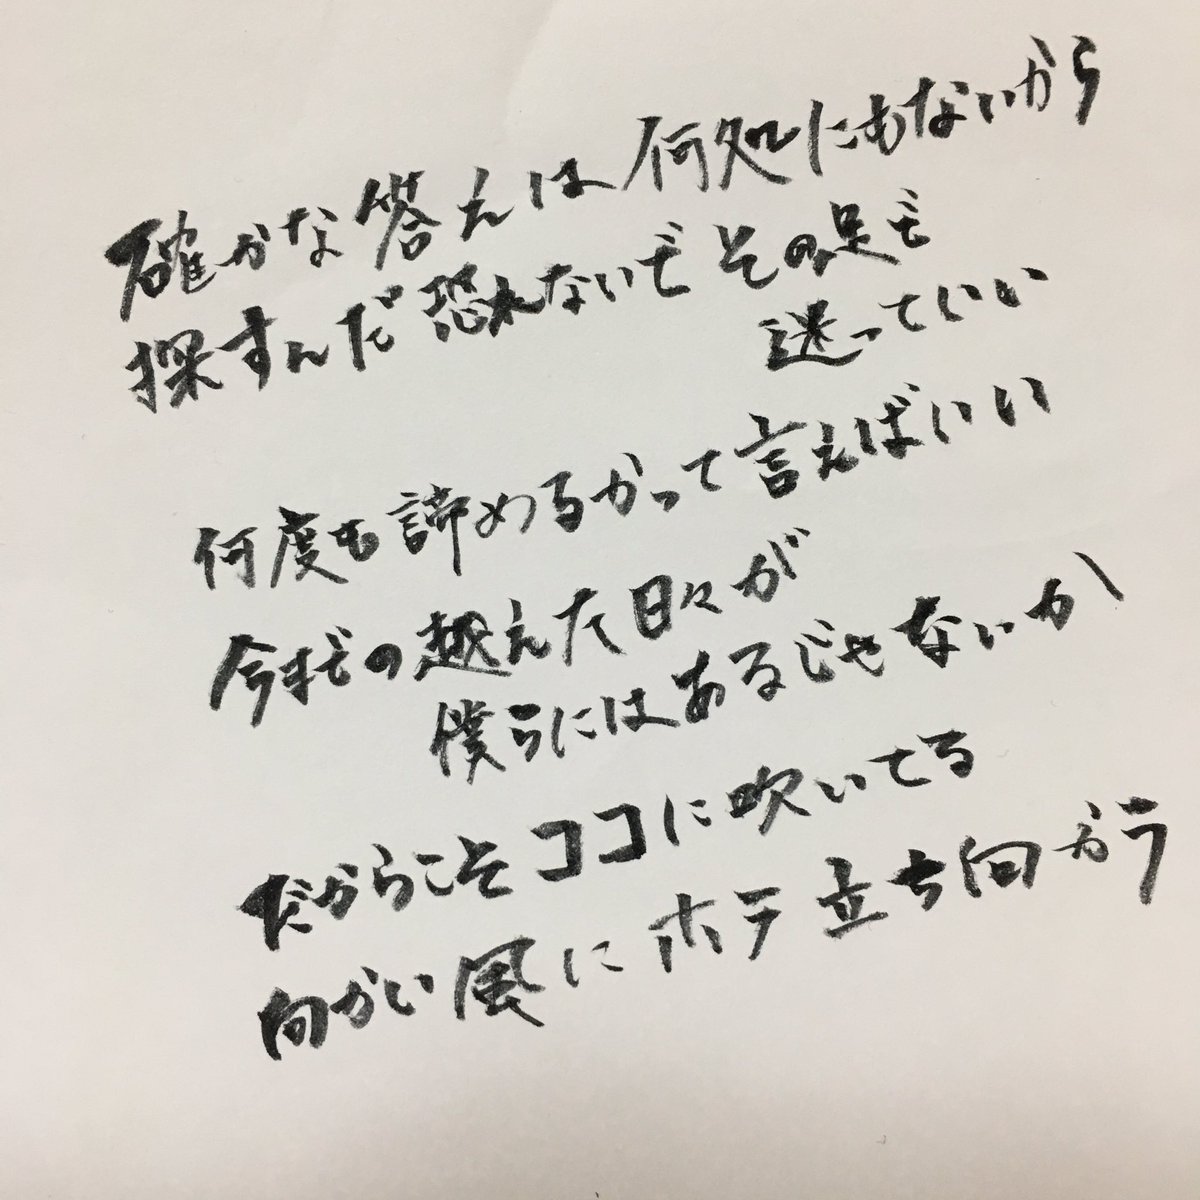 確かな答えは何処にもないから
探すんだ恐れないで その足で
迷っていい
何度も諦めるかって言えばいい
今までの越えた日々が
僕らにはあるじゃないか
だからこそココに吹いてる
向かい風に ホラ 立ち向かう